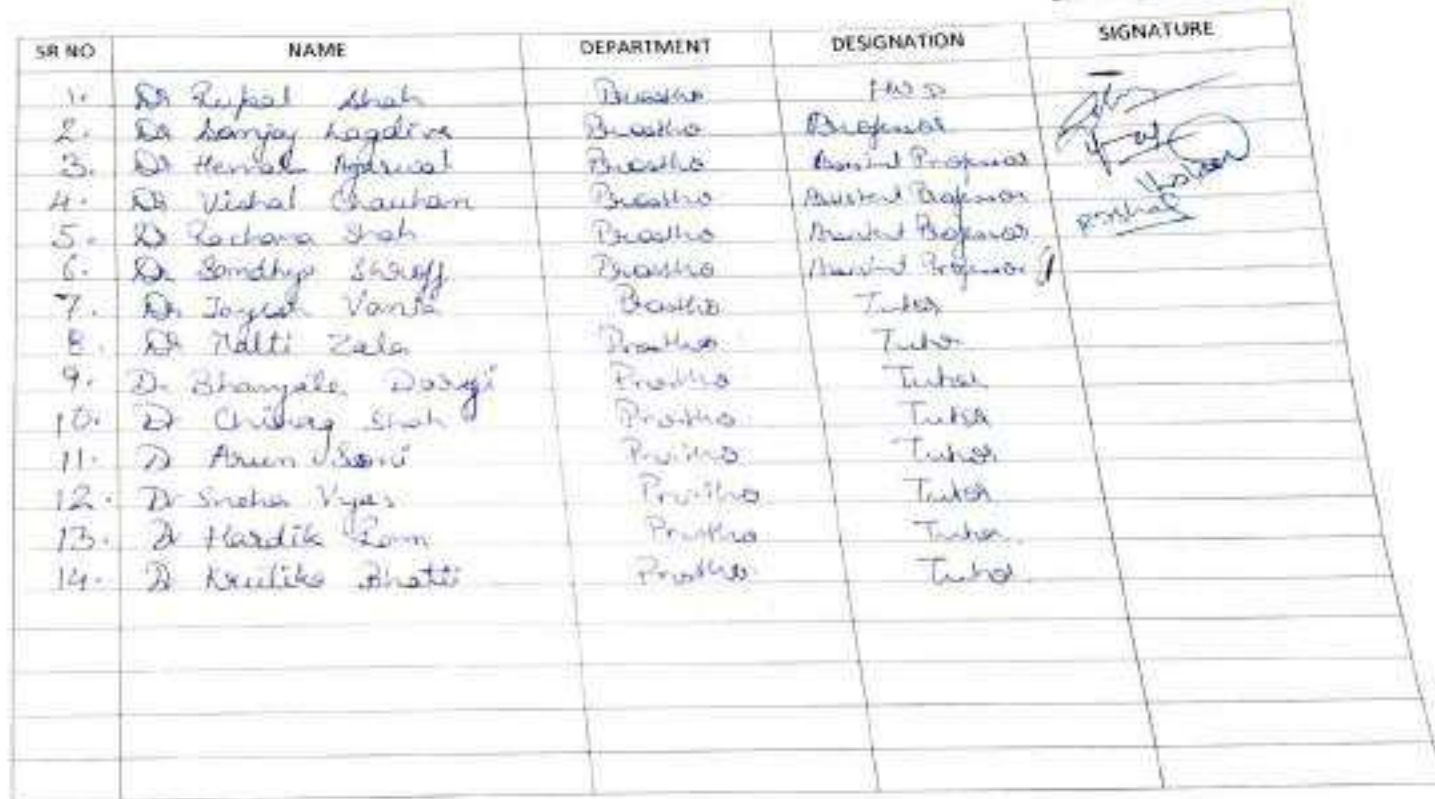 SR NO NAME DEPARTMENT DESIGNATION SIGNATURE
1. Dr Rupal Shah Prostho HOD
2. Dr Sanjay Lagdive Prostho Professor
3. Dr Hemal Agarwal Prostho Professor
4. Dr Vishal Chauhan Prostho Assistant Professor
5. Dr Rachana Shah Prostho Assistant Professor
6. Dr Sandhya Shroff Prostho Assistant Professor
7. Dr Jayesh Prostho Tutor
8. Dr Malti Zala Prostho Tutor
9. Dr Prostho Tutor
10. Dr Chirag Shah Prostho Tutor
11. Dr Arun Soni Prostho Tutor
12. Dr Sneha Vyas Prostho Tutor
13. Dr Hardik Ram Prostho Tutor
14. Dr Krutika Bhatti Prostho Tutor